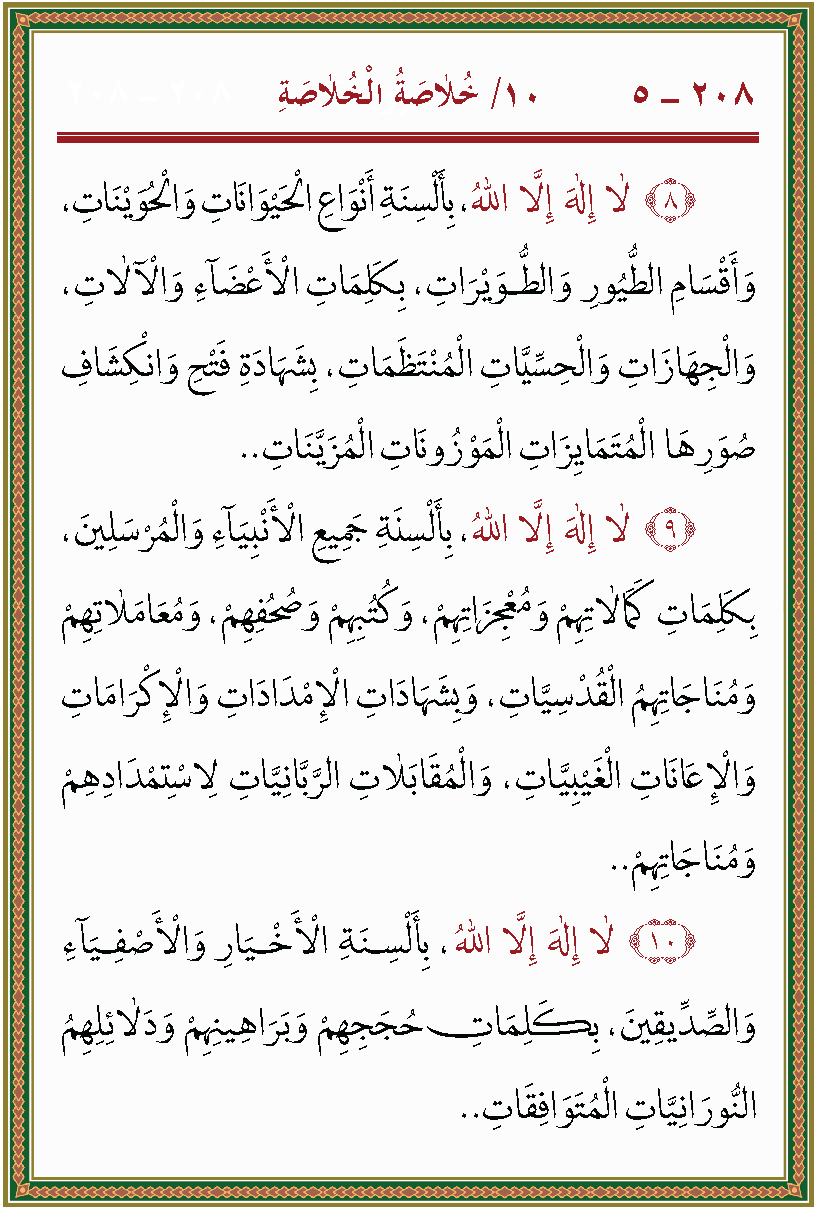 ٢٠٨ ــ ٥ ١٠/ خُلَاصَةُ الْخُلَاصَةِ ٢٠٨ ــ ٢٠٨
﴿٨﴾ لَا إِلٰهَ إِلَّا اللهُ، بِأَلْسِنَةِ أَنْوَاعِ الْحَيْوَانَاتِ وَالْحُوَيْنَاتِ،
وَأَقْسَامِ الطُّيُورِ وَالطُّوَيْرَاتِ، بِكَلِمَاتِ الْأَعْضَآءِ وَالْآلَاتِ،
وَالْجِهَازَاتِ وَالْحِسِّيَّاتِ الْمُنْتَظَمَاتِ، بِشَهَادَةِ فَتْحِ وَانْكِشَافِ
صُوَرِهَا الْمُتَمَايِزَاتِ الْمَوْزُونَاتِ الْمُزَيَّنَاتِ..
﴿٩﴾ لَا إِلٰهَ إِلَّا اللهُ، بِأَلْسِنَةِ جَمِيعِ الْأَنْبِيَآءِ وَالْمُرْسَلِينَ،
بِكَلِمَاتِ كَمَالَاتِهِمْ وَمُعْجِزَاتِهِمْ، وَكُتُبِهِمْ وَصُحُفِهِمْ، وَمُعَامَلَاتِهِمْ
وَمُنَاجَاتِهِمُ الْقُدْسِيَّاتِ، وَبِشَهَادَاتِ الْإِمْدَادَاتِ وَالْإِكْرَامَاتِ
وَالْإِعَانَاتِ الْغَيْبِيَّاتِ، وَالْمُقَابَلَاتِ الرَّبَّانِيَّاتِ لِاسْتِمْدَادِهِمْ
وَمُنَاجَاتِهِمْ..
﴿١٠﴾ لَا إِلٰهَ إِلَّا اللهُ، بِأَلْسِنَةِ الْأَخْيَارِ وَالْأَصْفِيَآءِ
وَالصِّدِّيقِينَ، بِكَلِمَاتِ حُجَجِهِمْ وَبَرَاهِينِهِمْ وَدَلَائِلِهِمُ
النُّورَانِيَّاتِ الْمُتَوَافِقَاتِ..